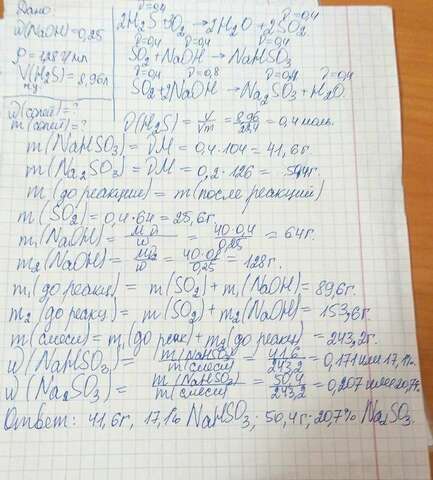 Дано
ω(NaOH)=0,25
ρ=1,28 г/мл
V(H₂S)=8,96л
н.у.
ω(солей)=?
m(солей)=?
ν=0,4 ν=0,4
2H₂S+3O₂→2H₂O+2SO₂
ν=0,4 ν=0,4 ν=0,4
SO₂+NaOH→NaHSO₃
ν=0,4 ν=0,8 ν=0,4
SO₂+2NaOH→Na₂SO₃+H₂O
ν(H₂S)=V/Vm=8,96/22,4=0,4 моль.
m(NaHSO₃)=νM=0,4·104=41,6г.
m(Na₂SO₃)=νM=0,2·126=
m(до реакции)=m(после реакций)
m(SO₂)=0,4·64=25,6г.
m₁(NaOH)=Mν/ω=40·0,4/0,25=64г.
m₂(NaOH)=Mν/ω=40·0,8/0,25=128г.
m₁(до реакц)=m(SO₂)+m₁(NaOH)=89,6г.
m₂(до реакц)=m(SO₂)+m₂(NaOH)=153,6г.
m(смеси)=m₁(до реак)+m₂(до реакц)=243,2г.
ω(NaHSO₃)=m(NaHSO₃)/m(смеси)=41,6/243,2=0,171 или 17,1%
ω(Na₂SO₃)=m(NaHSO₃)/m(смеси)=50,4/243,2=0,207 или 20,7%
Ответ: 41,6г, 17,1% NaHSO₃; 50,4г; 20,7% Na₂SO₃.